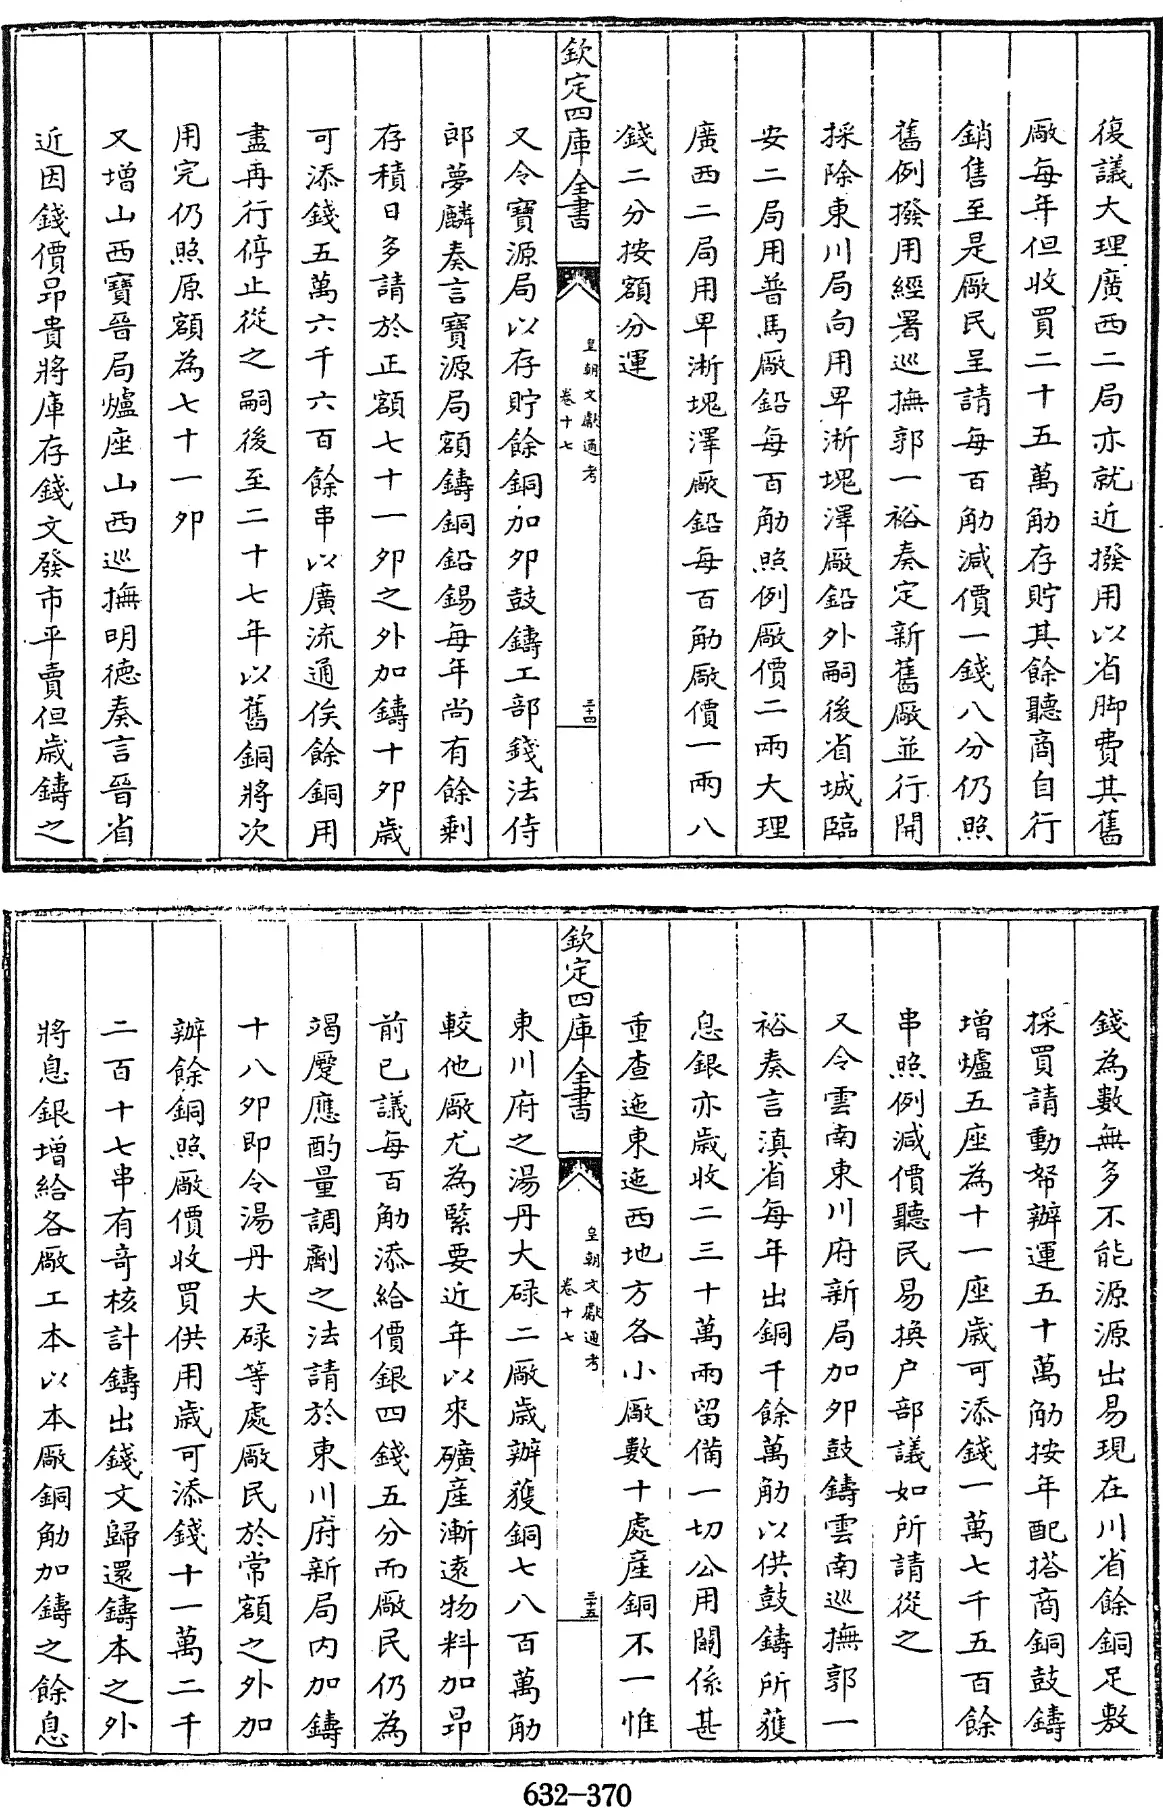 復議大理廣西二局亦就近撥用以省脚費其舊
厰每年但收買二十五萬觔存貯其餘聽商自行
銷售至是厰民呈請每百觔減價一錢八分仍照
舊例撥用經署巡撫郭一裕奏定新舊厰並行開
採除東川局向用卑淅塊澤厰鉛外嗣後省城臨
安二局用普馬厰鉛每百觔照例厰價二兩大理
廣西二局用卑淅塊澤厰鉛每百觔厰價一兩八
錢二分按額分運
欽定四庫全書
皇朝文獻通考
卷十七
三十四
又令寶源局以存貯餘銅加夘鼓鑄工部錢法侍
郎夢麟奏言寶源局額鑄銅鉛錫每年尚有餘剩
存積日多請於正額七十一夘之外加鑄十夘歳
可添錢五萬六千六百餘串以廣流通俟餘銅用
盡再行停止從之嗣後至二十七年以舊銅將次
用完仍照原額為七十一夘
又增山西寶晉局爐座山西巡撫明德奏言晉省
近因錢價昻貴將庫存錢文發市平賣但歳鑄之
錢為數無多不能源源出易現在川省餘銅足敷
採買請動帑辦運五十萬觔按年配搭商銅鼓鑄
增爐五座為十一座歳可添錢一萬七千五百餘
串照例減價聽民易換户部議如所請從之
又令雲南東川府新局加夘鼓鑄雲南巡撫郭一
裕奏言滇省每年出銅千餘萬觔以供鼓鑄所獲
息銀亦歳收二三十萬兩留備一切公用闗係甚
重查迤東迤西地方各小厰數十處産銅不一惟
欽定四庫全書
皇朝文獻通考
卷十七
三十五
東川府之湯丹大碌二厰歳辦獲銅七八百萬觔
較他厰尤為緊要近年以來礦産漸逺物料加昻
前已議每百觔添給價銀四錢五分而厰民仍為
竭蹷應酌量調劑之法請於東川府新局内加鑄
十八夘即令湯丹大碌等處厰民於常額之外加
辦餘銅照厰價收買供用歳可添錢十一萬二千
二百十七串有奇核計鑄出錢文歸還鑄本之外
將息銀增給各厰工本以本厰銅觔加鑄之餘息
632-370